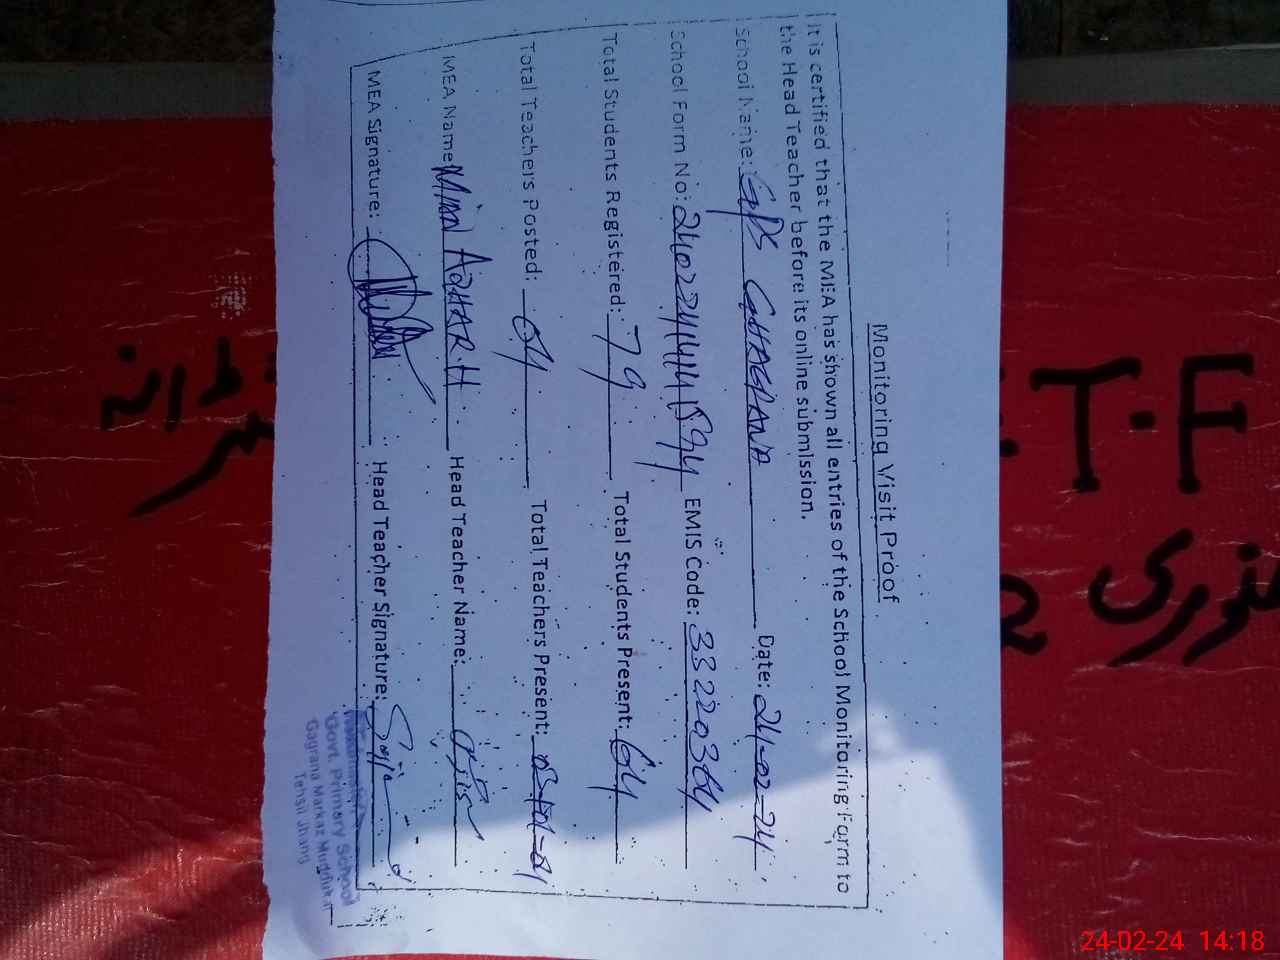 Monitoring Visit Proof
It is certified that the MEA has shown all entries of the School Monitoring Form to
the Head Teacher before its online submission.
School Name: GPS GHAGRANA Date: 24-02-24
School Form No: EMIS Code: 33220364
Total Students Registered: 79 Total Students Present: 64
Total Teachers Posted: 04 Total Teachers Present:
MEA Name: Mian AZHAR.H Head Teacher Name:
MEA Signature: Head Teacher Signature:
Govt. Primary School
Gagrana Markaz
Tehsil Jhang
T.F
24-02-24 14:18